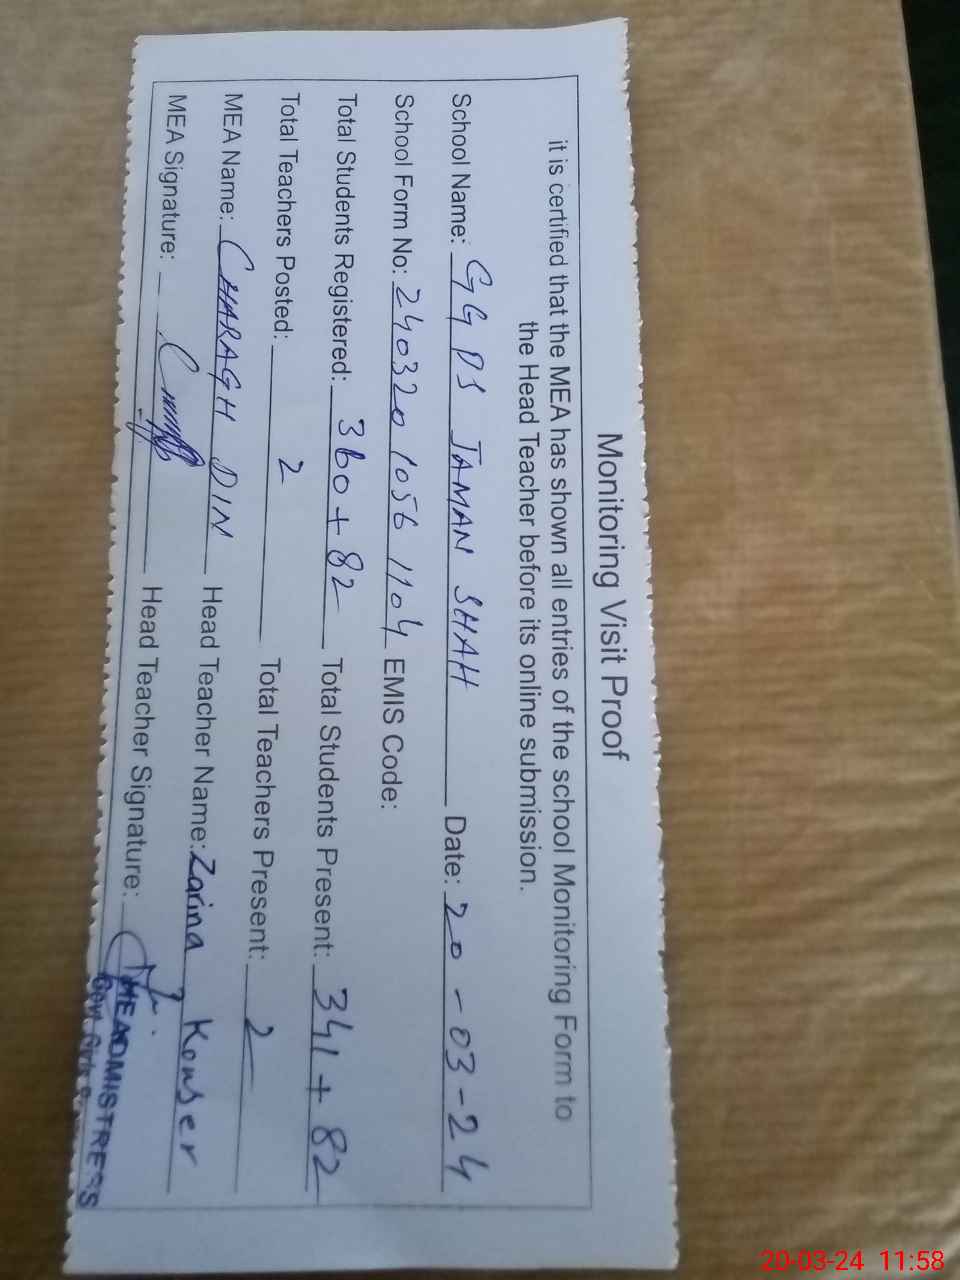 Monitoring Visit Proof
it is certified that the MEA has shown all entries of the school Monitoring Form to
the Head Teacher before its online submission.
School Name: GG PS JAMAN SHAH Date: 20-03-24
School Form No: 240320 1056 1104 EMIS Code:
Total Students Registered: 360 + 82 Total Students Present: 341 + 82
Total Teachers Posted: 2 Total Teachers Present: 2
MEA Name: CHARAGH DIN Head Teacher Name: Zarina Konser
MEA Signature: Head Teacher Signature:
HEADMISTRESS
Govt Girls
20-03-24 11:58